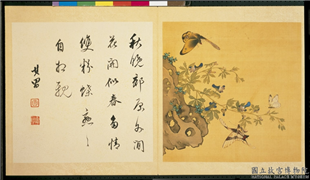 秋晚郊原外閒
花開似春多情
雙粉蝶戀々
自相親
國立故宮博物院
NATIONAL PALACE MUSEUM